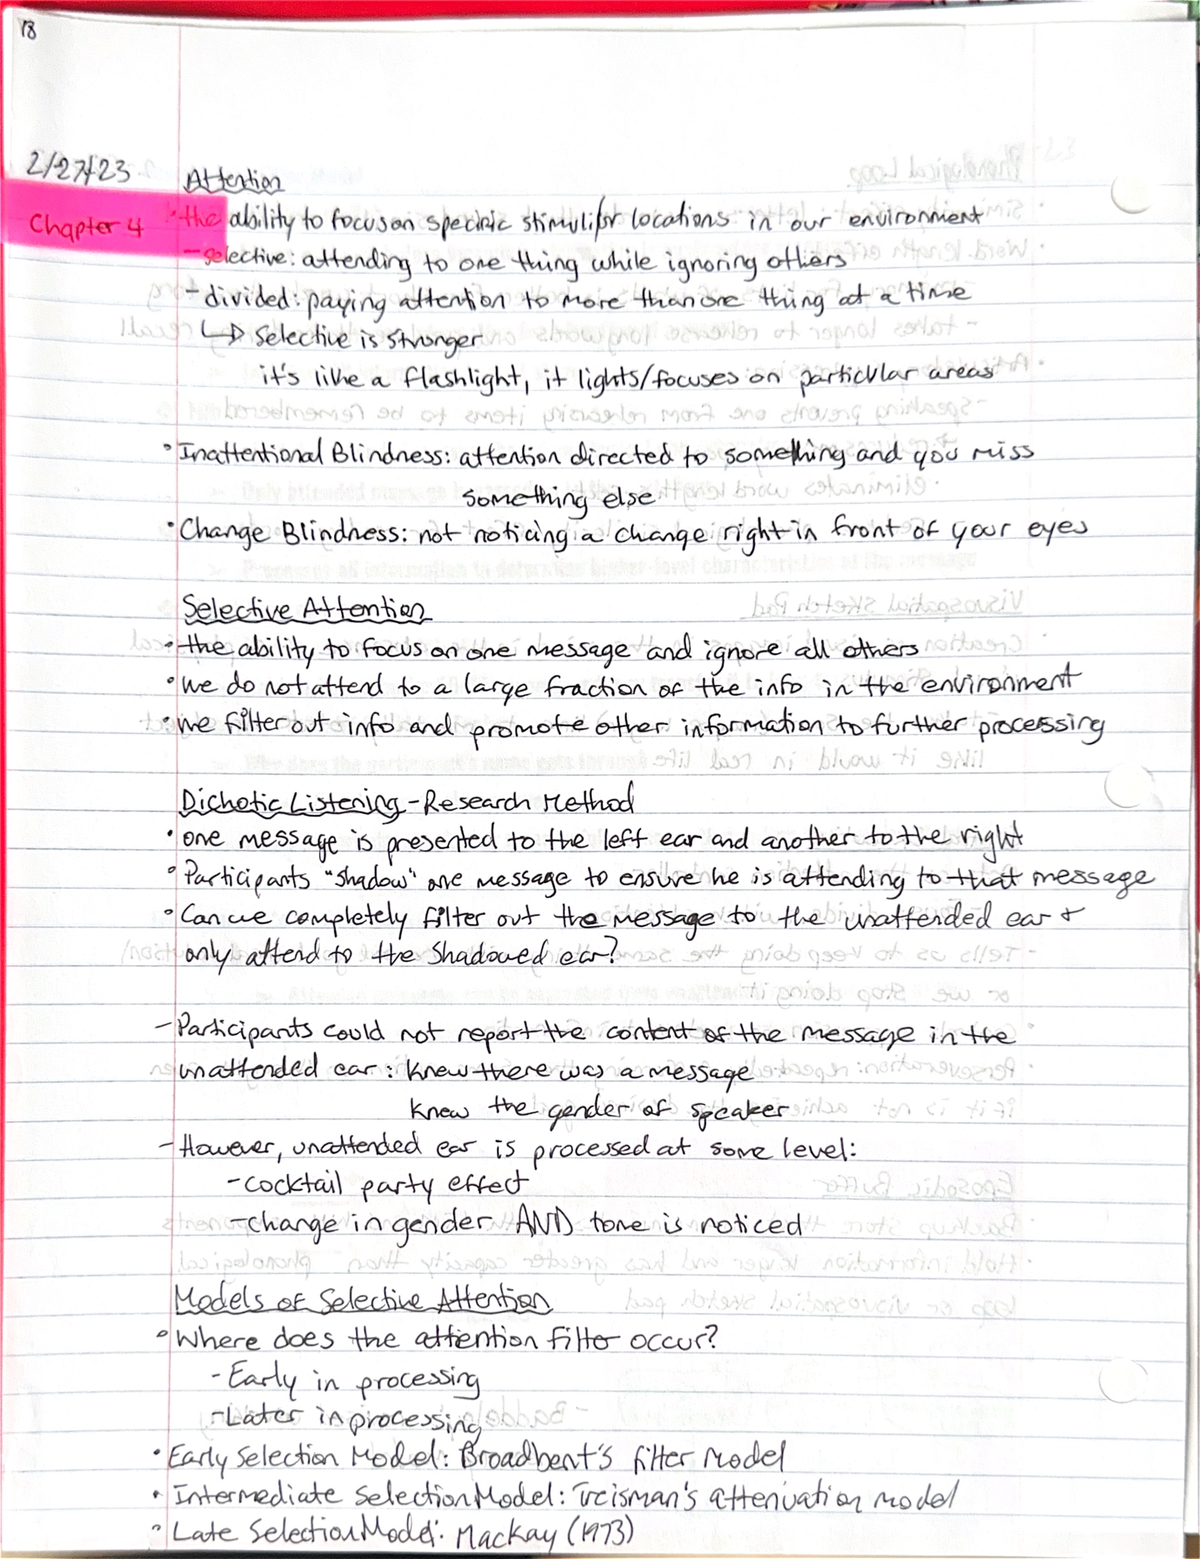 18
2/27/23
Attention
Chapter 4
• the ability to focus on specific stimuli/or locations in our environment
- selective: attending to one thing while ignoring others
- divided: paying attention to more than one thing at a time
↳ Selective is stronger
it's like a flashlight, it lights/focuses on particular areas
• Inattentional Blindness: attention directed to something and you miss
something else
• Change Blindness: not noticing a change right in front of your eyes
Selective Attention
• the ability to focus on one message and ignore all others
• we do not attend to a large fraction of the info in the environment
• we filter out info and promote other information to further processing
Dichotic Listening - Research Method
• one message is presented to the left ear and another to the right
• Participants "shadow" one message to ensure he is attending to that message
• Can we completely filter out the message to the unattended ear +
only attend to the shadowed ear?
- Participants could not report the content of the message in the
unattended ear: knew there was a message
knew the gender of speaker
- However, unattended ear is processed at some level:
- cocktail party effect
- change in gender AND tone is noticed
Models of Selective Attention
• Where does the attention filter occur?
- Early in processing
- Later in processing
• Early Selection Model: Broadbent's filter Model
• Intermediate Selection Model: Treisman's attenuation model
• Late Selection Model: Mackay (1973)